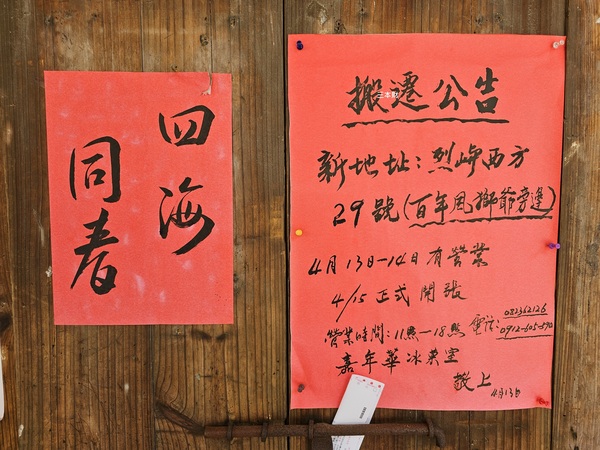 四海
同春
搬遷公告
新地址：烈嶼西方
29號(百年風獅爺旁邊)
4月13日-14日有營業
4/15正式開張
營業時間：11點-18點
電話：082362126
0912-605-590
嘉年華冰菓室
敬上
4月13日